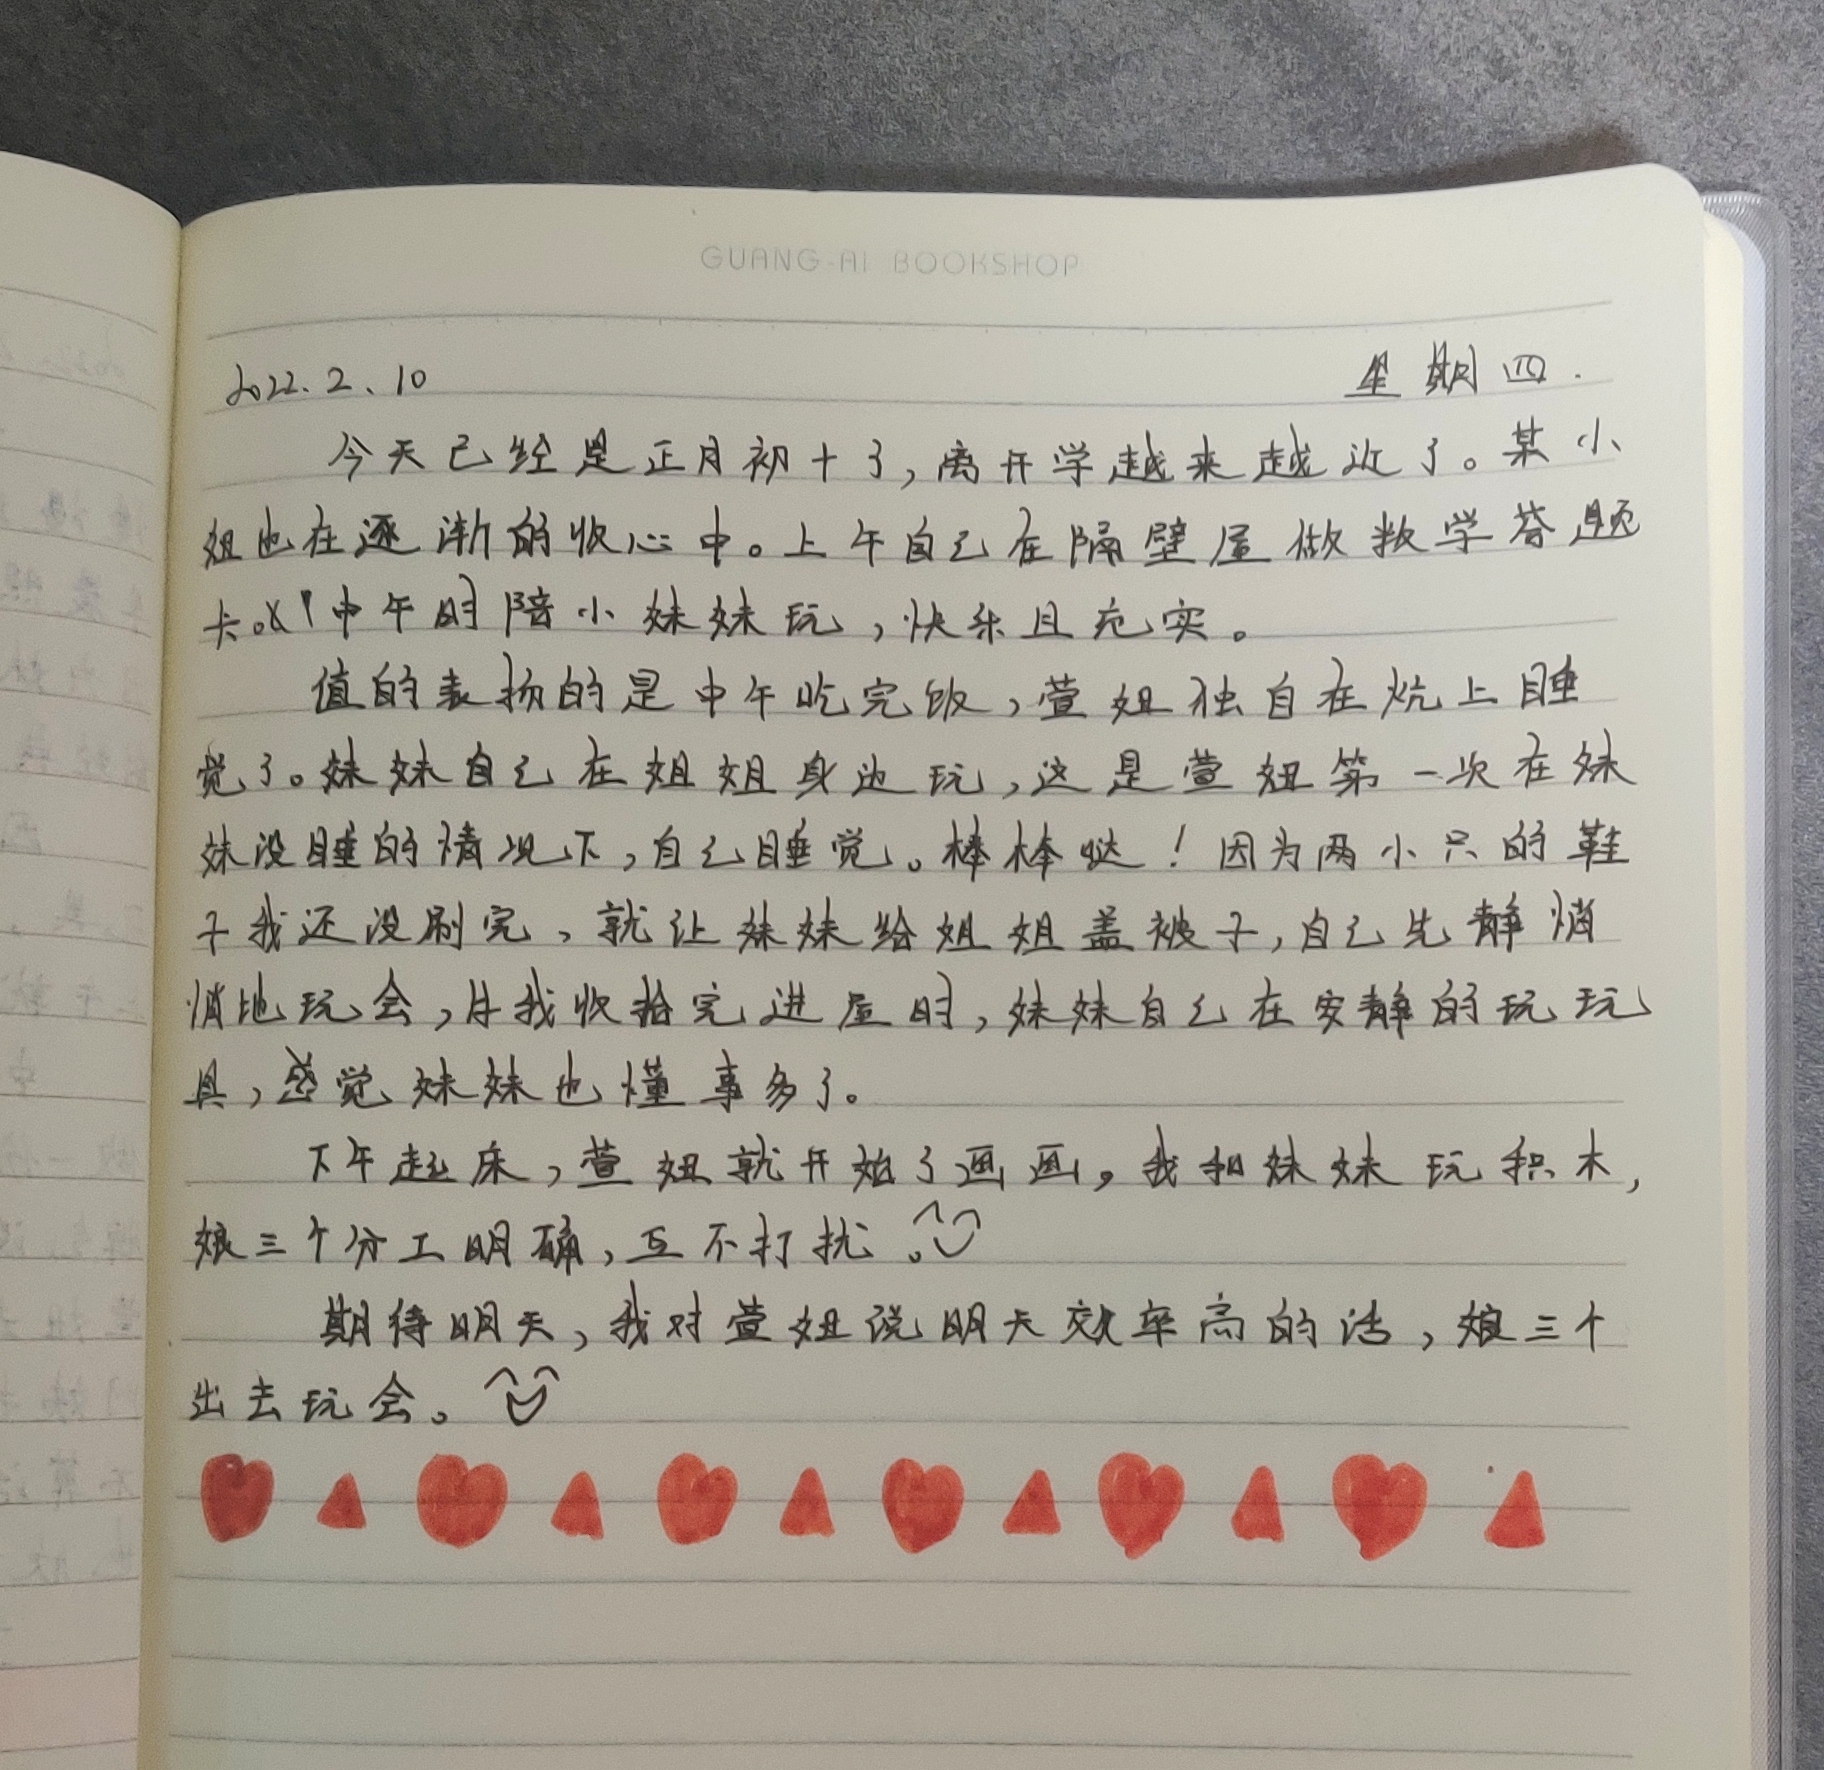 GUANG.AI BOOKSHOP
2022.2.10 星期四.
今天已经是正月初十了,离开学越来越近了。某小
姐也在逐渐的收心中。上午自己在隔壁屋做数学答题
卡。中午时陪小妹妹玩,快乐且充实。
值的表扬的是中午吃完饭,萱妞独自在炕上睡
觉了。妹妹自己在姐姐身边玩,这是萱妞第一次在妹
妹没睡的情况下,自己睡觉。棒棒哒!因为两小只的鞋
子我还没刷完,就让妹妹给姐姐盖被子,自己先静悄
悄地玩会,片我收拾完进屋时,妹妹自己在安静的玩玩
具,感觉妹妹也懂事多了。
下午起床,萱妞就开始了画画。我和妹妹玩积木,
娘三个分工明确,互不打扰。
期待明天,我对萱妞说明天效率高的话,娘三个
出去玩会。